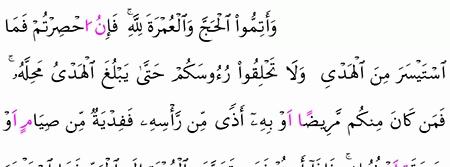 وَأَتِمُّوا۟ اُ۬لْحَجَّ وَالْعُمْرَةَ لِلهِۖ فَإِنُ ا۟حْصِرْتُمْ فَمَا
اَ۪سْتَيْسَرَ مِنَ اَ۬لْهَدْيِ وَلَا تَحْلِقُوا۟ رُءُوسَكُمْ حَتَّىٰ يَبْلُغَ اَ۬لْهَدْىُ مَحِلَّهُۥۖ
فَمَن كَانَ مِنكُم مَّرِيضًا اَوْ بِهِۦٓ أَذًى مِّن رَّأْسِهِۦ فَفِدْيَةٌ مِّن صِيَامٍ اَوْ